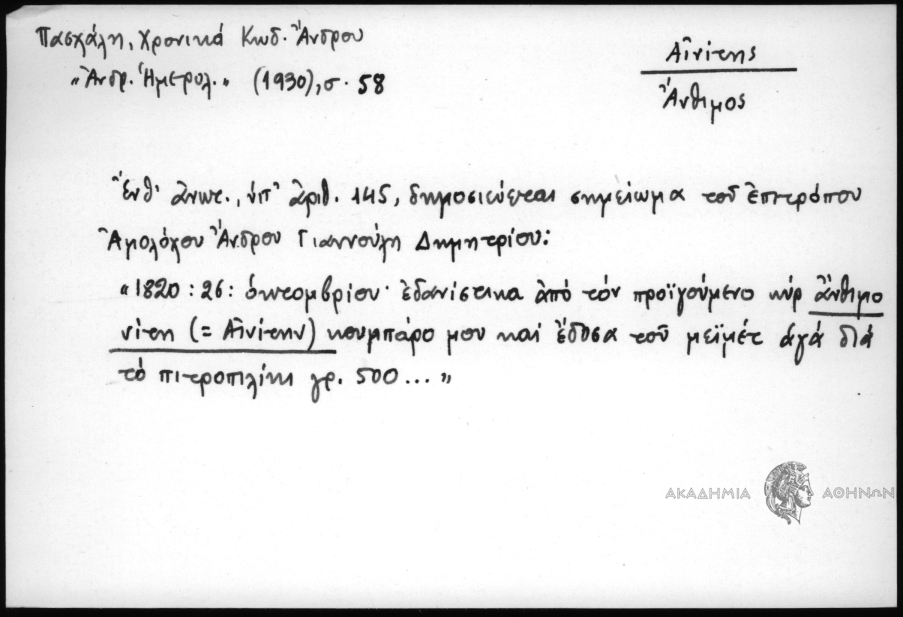 Πασχάλη, Χρονικά Κωδ. Ἄνδρου
"Ἀνδρ. Ἡμερολ." (1930), σ. 58
Αἰνίτης
Ἄνθιμος
Ἔνθ' ἀνωτ., ὑπ' ἀριθ. 145, δημοσιεύεται σημείωμα τοῦ ἐπιτρόπου
Ἀμολόχου Ἄνδρου Γιαννούλη Δημητρίου:
"1820 : 26 : ὀκτομβρίου· ἐδανίστικα ἀπό τόν προϊγούμενο κύρ ἄνθιμο
νίτη (= Αἰνίτην) κουμπάρο μου καί ἔδοσα τοῦ μεϊμέτ ἀγά διά
τό πιτροπιλίκι γρ. 500 ... "
ΑΚΑΔΗΜΙΑ ΑΘΗΝΩΝ